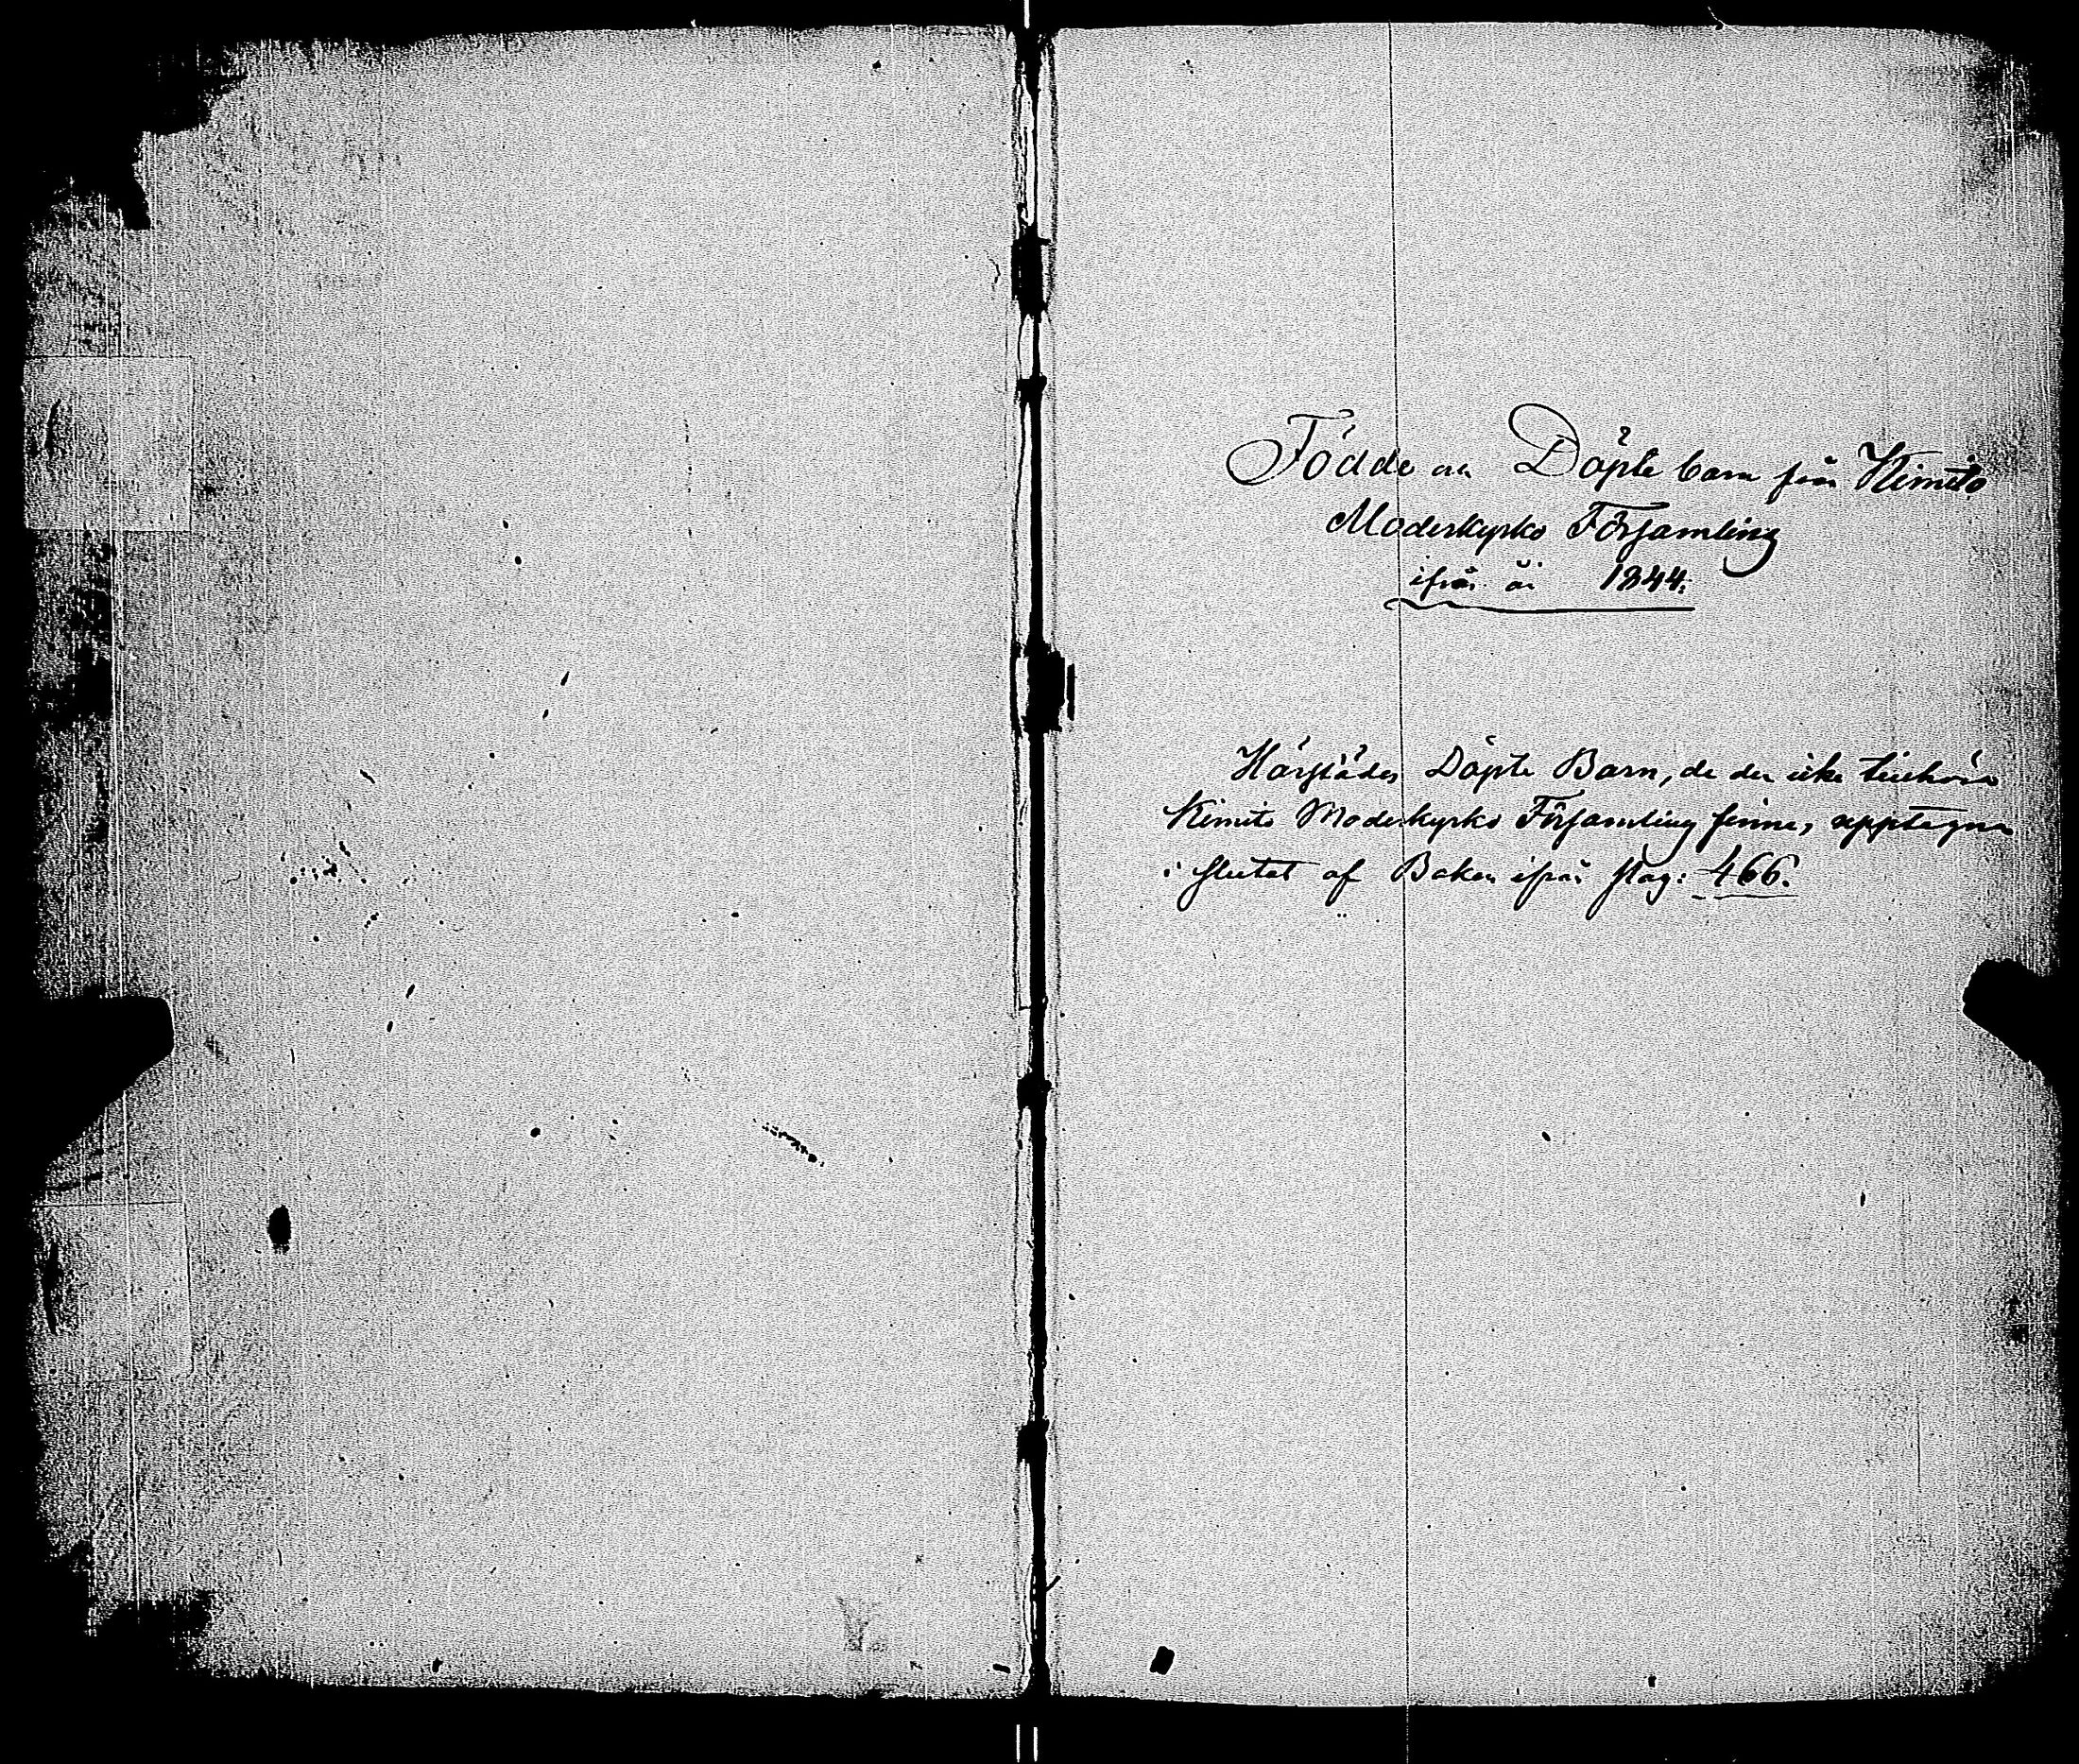 Födde och Döpte barn från Kimito
Moderkyrko Församling
ifrån år 1844.
Härstädes Döpte Barn, de der icke tillhöra
Kimito Moderkyrko Församling finnes upptagna
i slutet af Boken ifrån pag: 466.